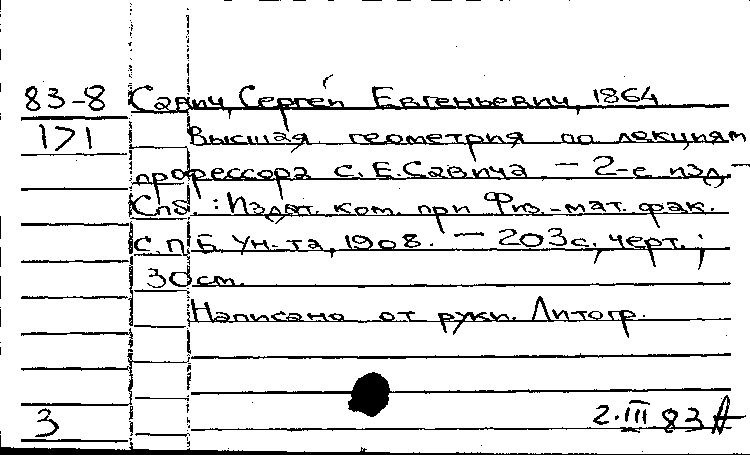 83-8 Савич, Сергей Евгеньевич, 1864
171 Высшая геометрия по лекциям
профессора С.Е.Савича. — 2-е изд. —
Спб. : Издат. ком. при Физ.-мат. фак.
С.П.Б. Ун-та, 1908. — 203 с., черт. ;
30 см.
Написано от руки. Литогр.
3 2.III 83